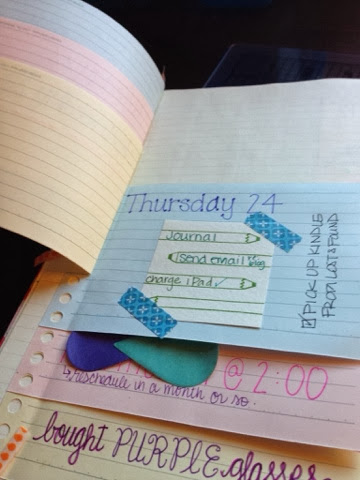 Thursday 24
Journal
send email
charge iPad ✓
☑ PICK UP KINDLE
FROM LOST & FOUND
@ 2:00
↳ reschedule in a month or so.
bought PURPLE glasses